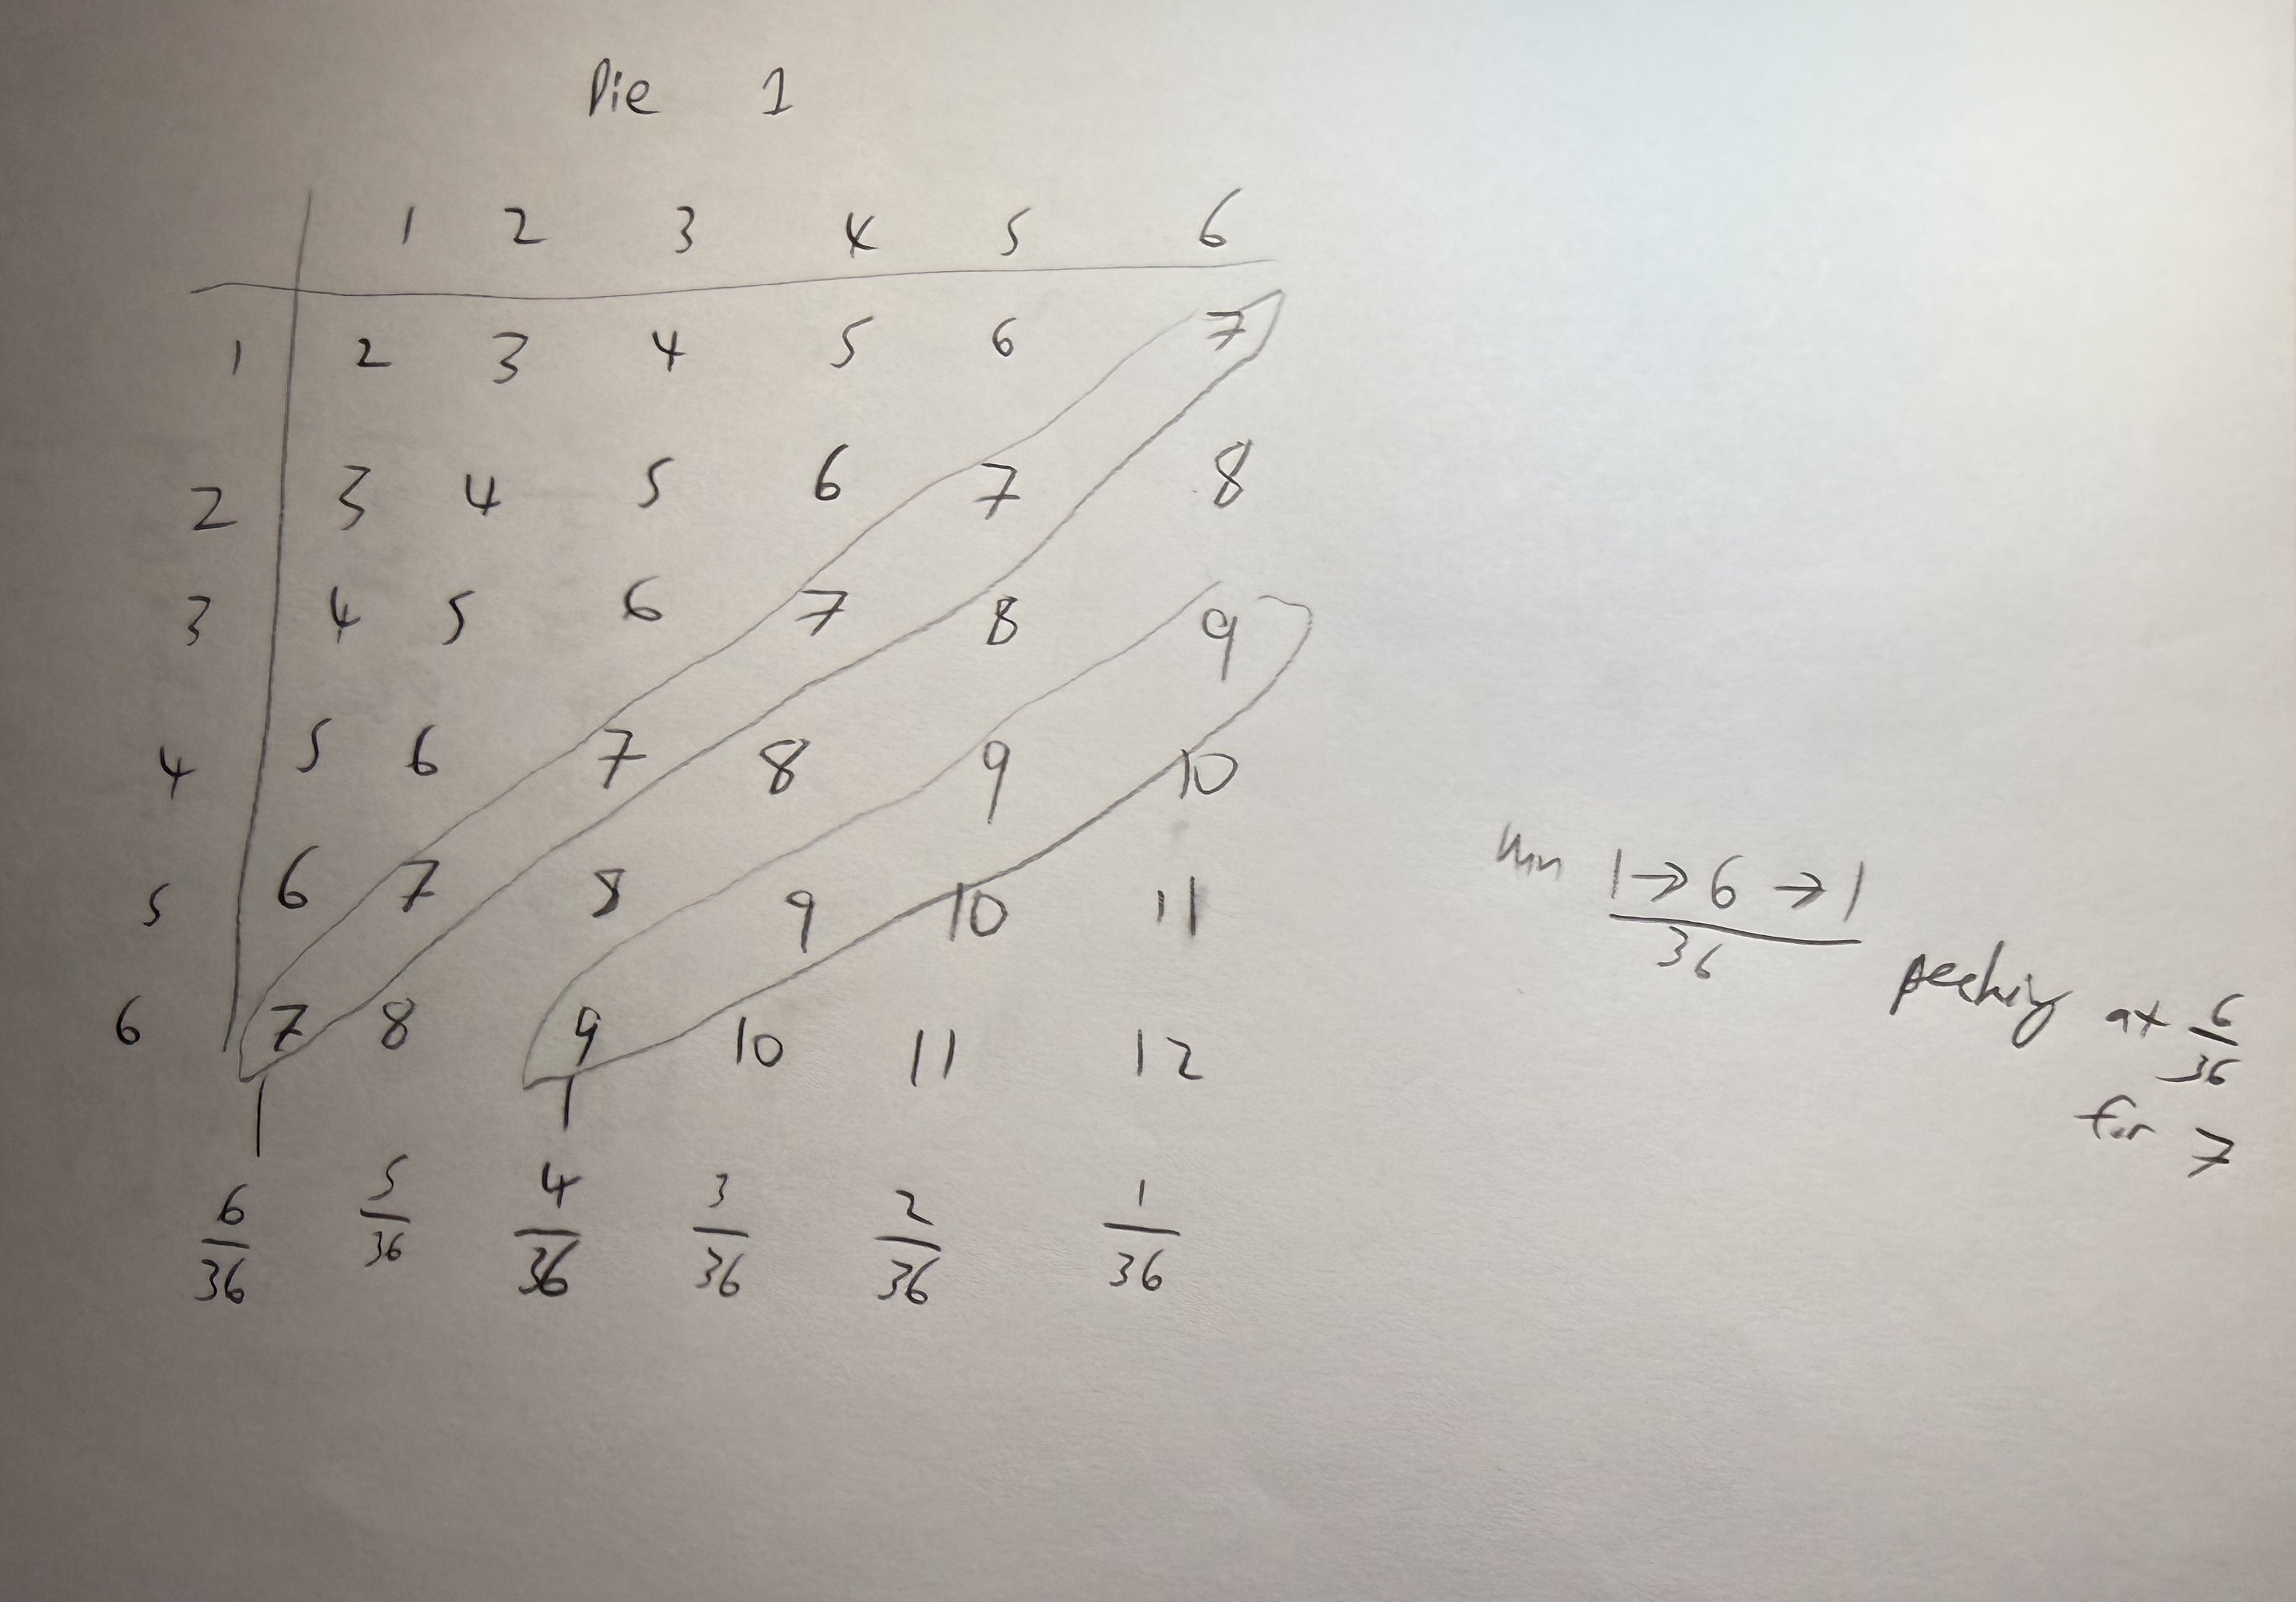 Die 1
1 2 3 4 5 6
1 2 3 4 5 6 7
2 3 4 5 6 7 8
3 4 5 6 7 8 9
4 5 6 7 8 9 10
5 6 7 8 9 10 11
6 7 8 9 10 11 12
6/36 5/36 4/36 3/36 2/36 1/36
1→6→1
36
at 6/36
for 7